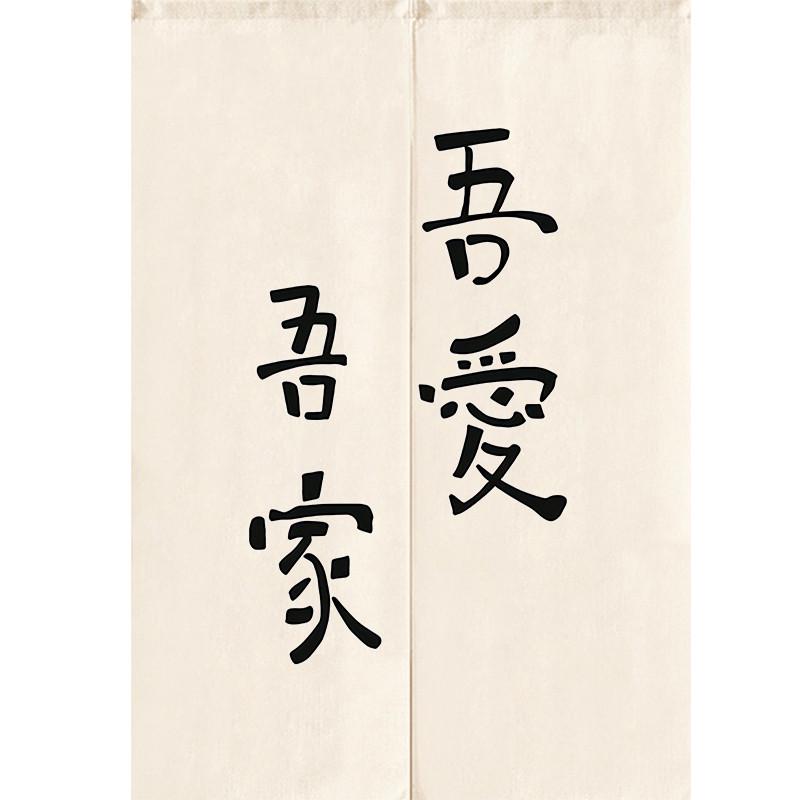 吾愛
吾家